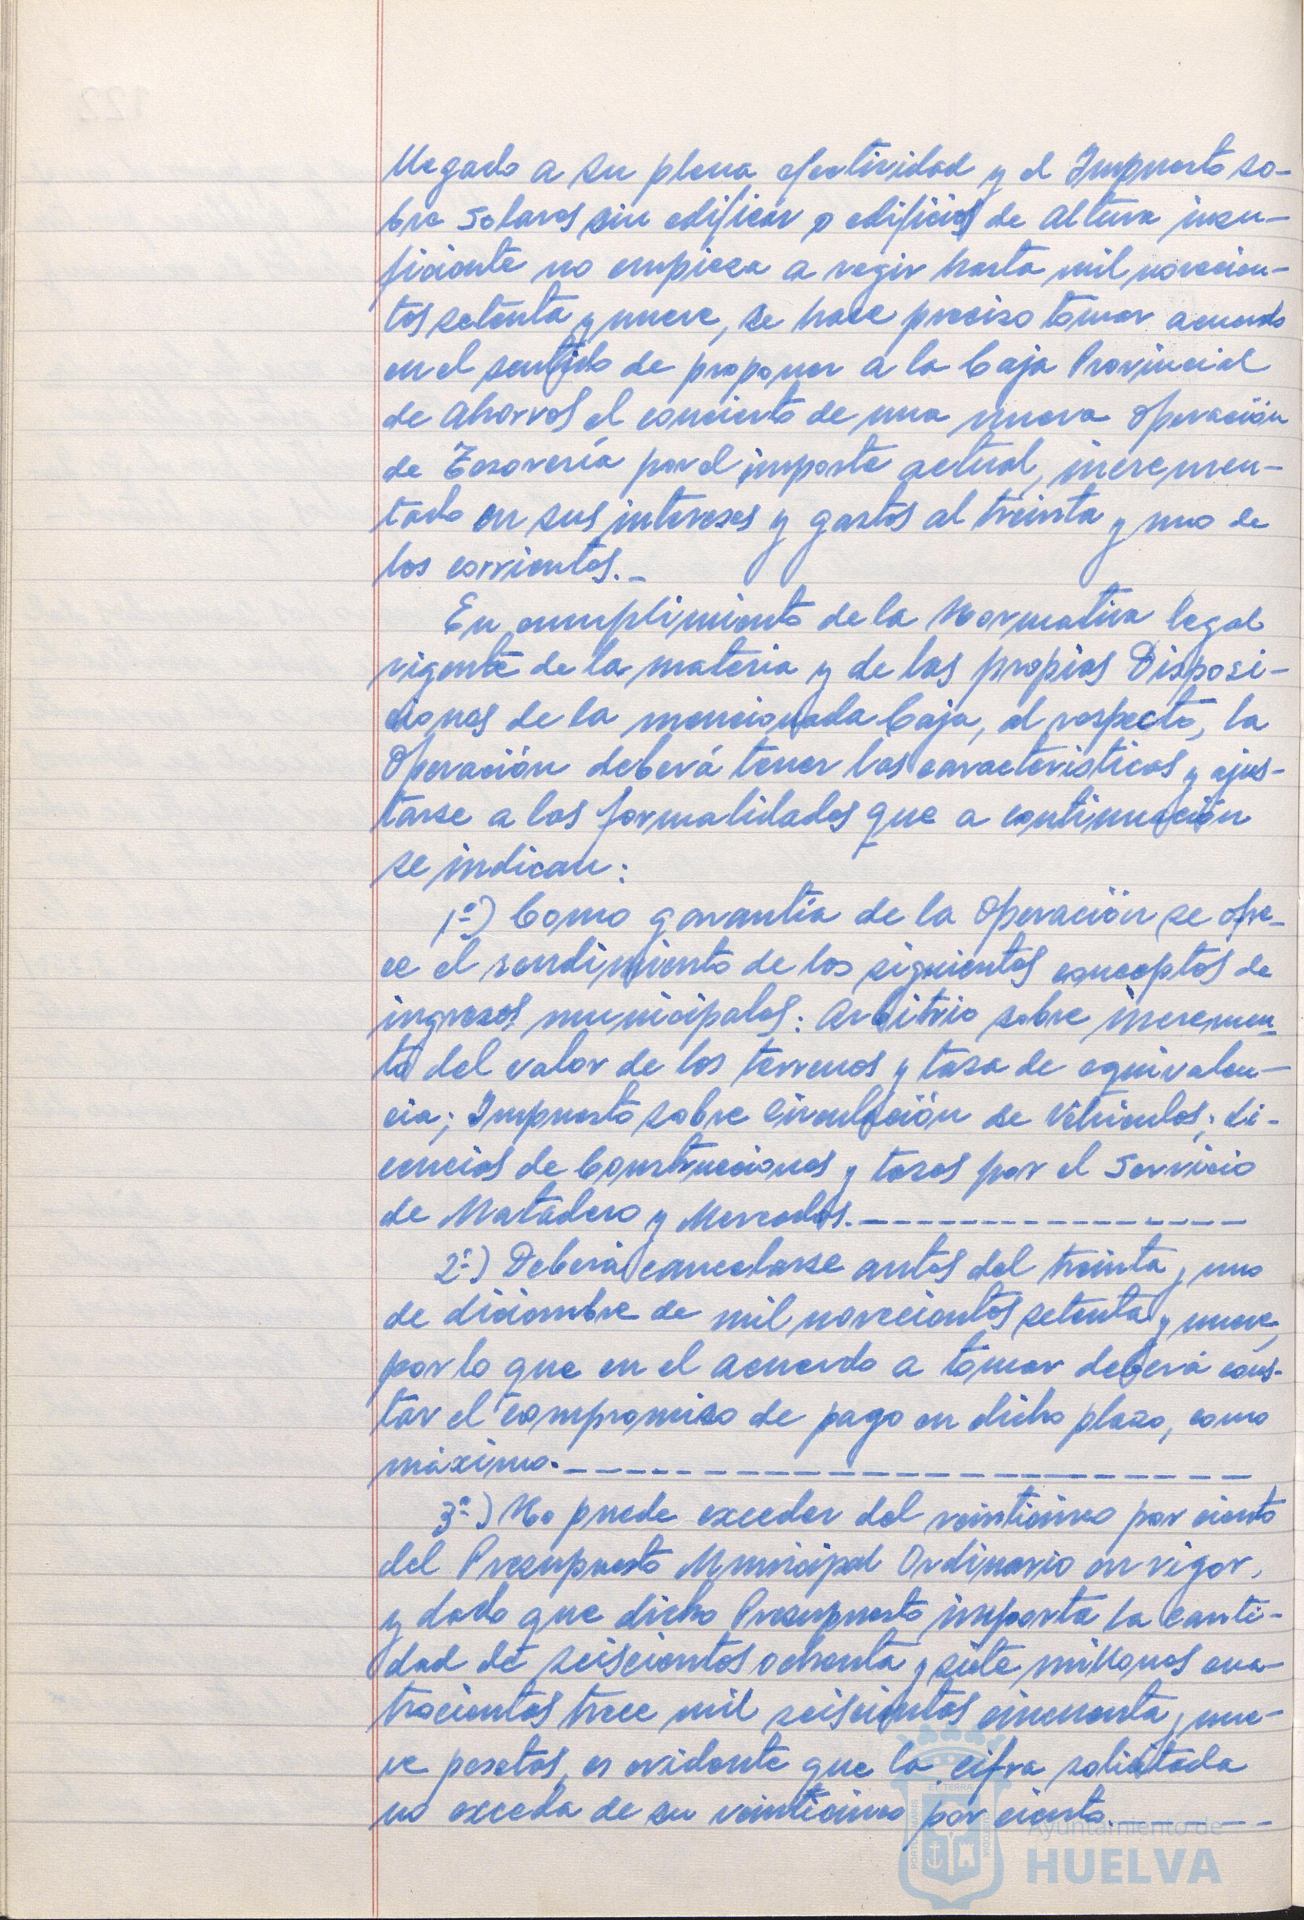 llegado a su plena efectividad y el Impuesto so-
bre Solares sin edificar o edificios de altura insu-
ficiente no empieza a regir hasta mil novecien-
tos setenta y nueve, se hace preciso tomar acuerdo
en el sentido de proponer a la Caja Provincial
de Ahorros el concierto de una nueva Operación
de Tesorería por el importe actual, incremen-
tado en sus intereses y gastos al treinta y uno de
los corrientes.-
En cumplimiento de la Normativa legal
vigente de la materia y de las propias Disposi-
ciones de la mencionada Caja, al respecto, la
Operación deberá tener las características y ajus-
tarse a las formalidades que a continuación
se indican:
1º-) Como garantía de la Operación se ofre-
ce el rendimiento de los siguientes conceptos de
ingresos municipales: Arbitrio sobre incremen-
to del valor de los terrenos y tasa de equivalen-
cia; Impuesto sobre Circulación de Vehículos; Li-
cencias de Construcciones y tasas por el Servicio
de Matadero y Mercados.----------------
2º-) Deberá cancelarse antes del treinta y uno
de diciembre de mil novecientos setenta y nueve,
por lo que en el acuerdo a tomar deberá cons-
tar el compromiso de pago en dicho plazo, como
máximo.----------------------------
3º-) No puede exceder del veinticinco por ciento
del Presupuesto Municipal Ordinario en vigor,
y dado que dicho Presupuesto importa la canti-
dad de seiscientos ochenta y siete millones cua-
trocientas trece mil seiscientas cincuenta y nue-
ve pesetas, es evidente que la cifra solicitada
no exceda de su veinticinco por ciento.------
Ayuntamiento de
HUELVA